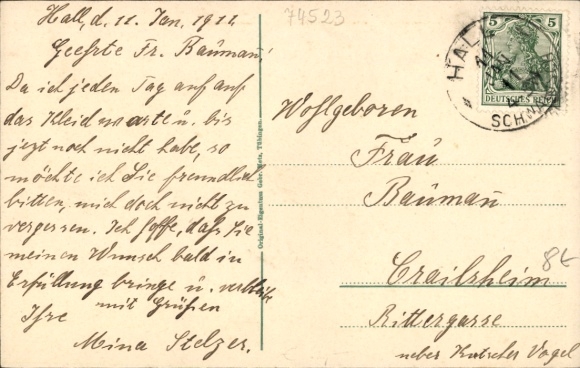 Hall, d, 11. Jan. 1911.
Geehrte Fr. Bauman̄!
Da ich jeden Tag auf auf
das Kleid warte u. bis
jezt noch nicht habe, so
möchte ich Sie freundlich
bitten, mich doch nicht zu
vergessen. Ich hoffe, daß Sie
meinen Wunsch bald in
Erfüllung bringe u. verbleibe
mit Grüßen
Ihre
Mina Stelzer.
74523
Original-Eigentum Gebr. Metz, Tübingen.
5 5
DEUTSCHES REICH
HALL
11
SCHW
Wohlgeboren
Frau
Bauman̄
Crailsheim
8€
Rittergasse
neber Kutscher Vogel